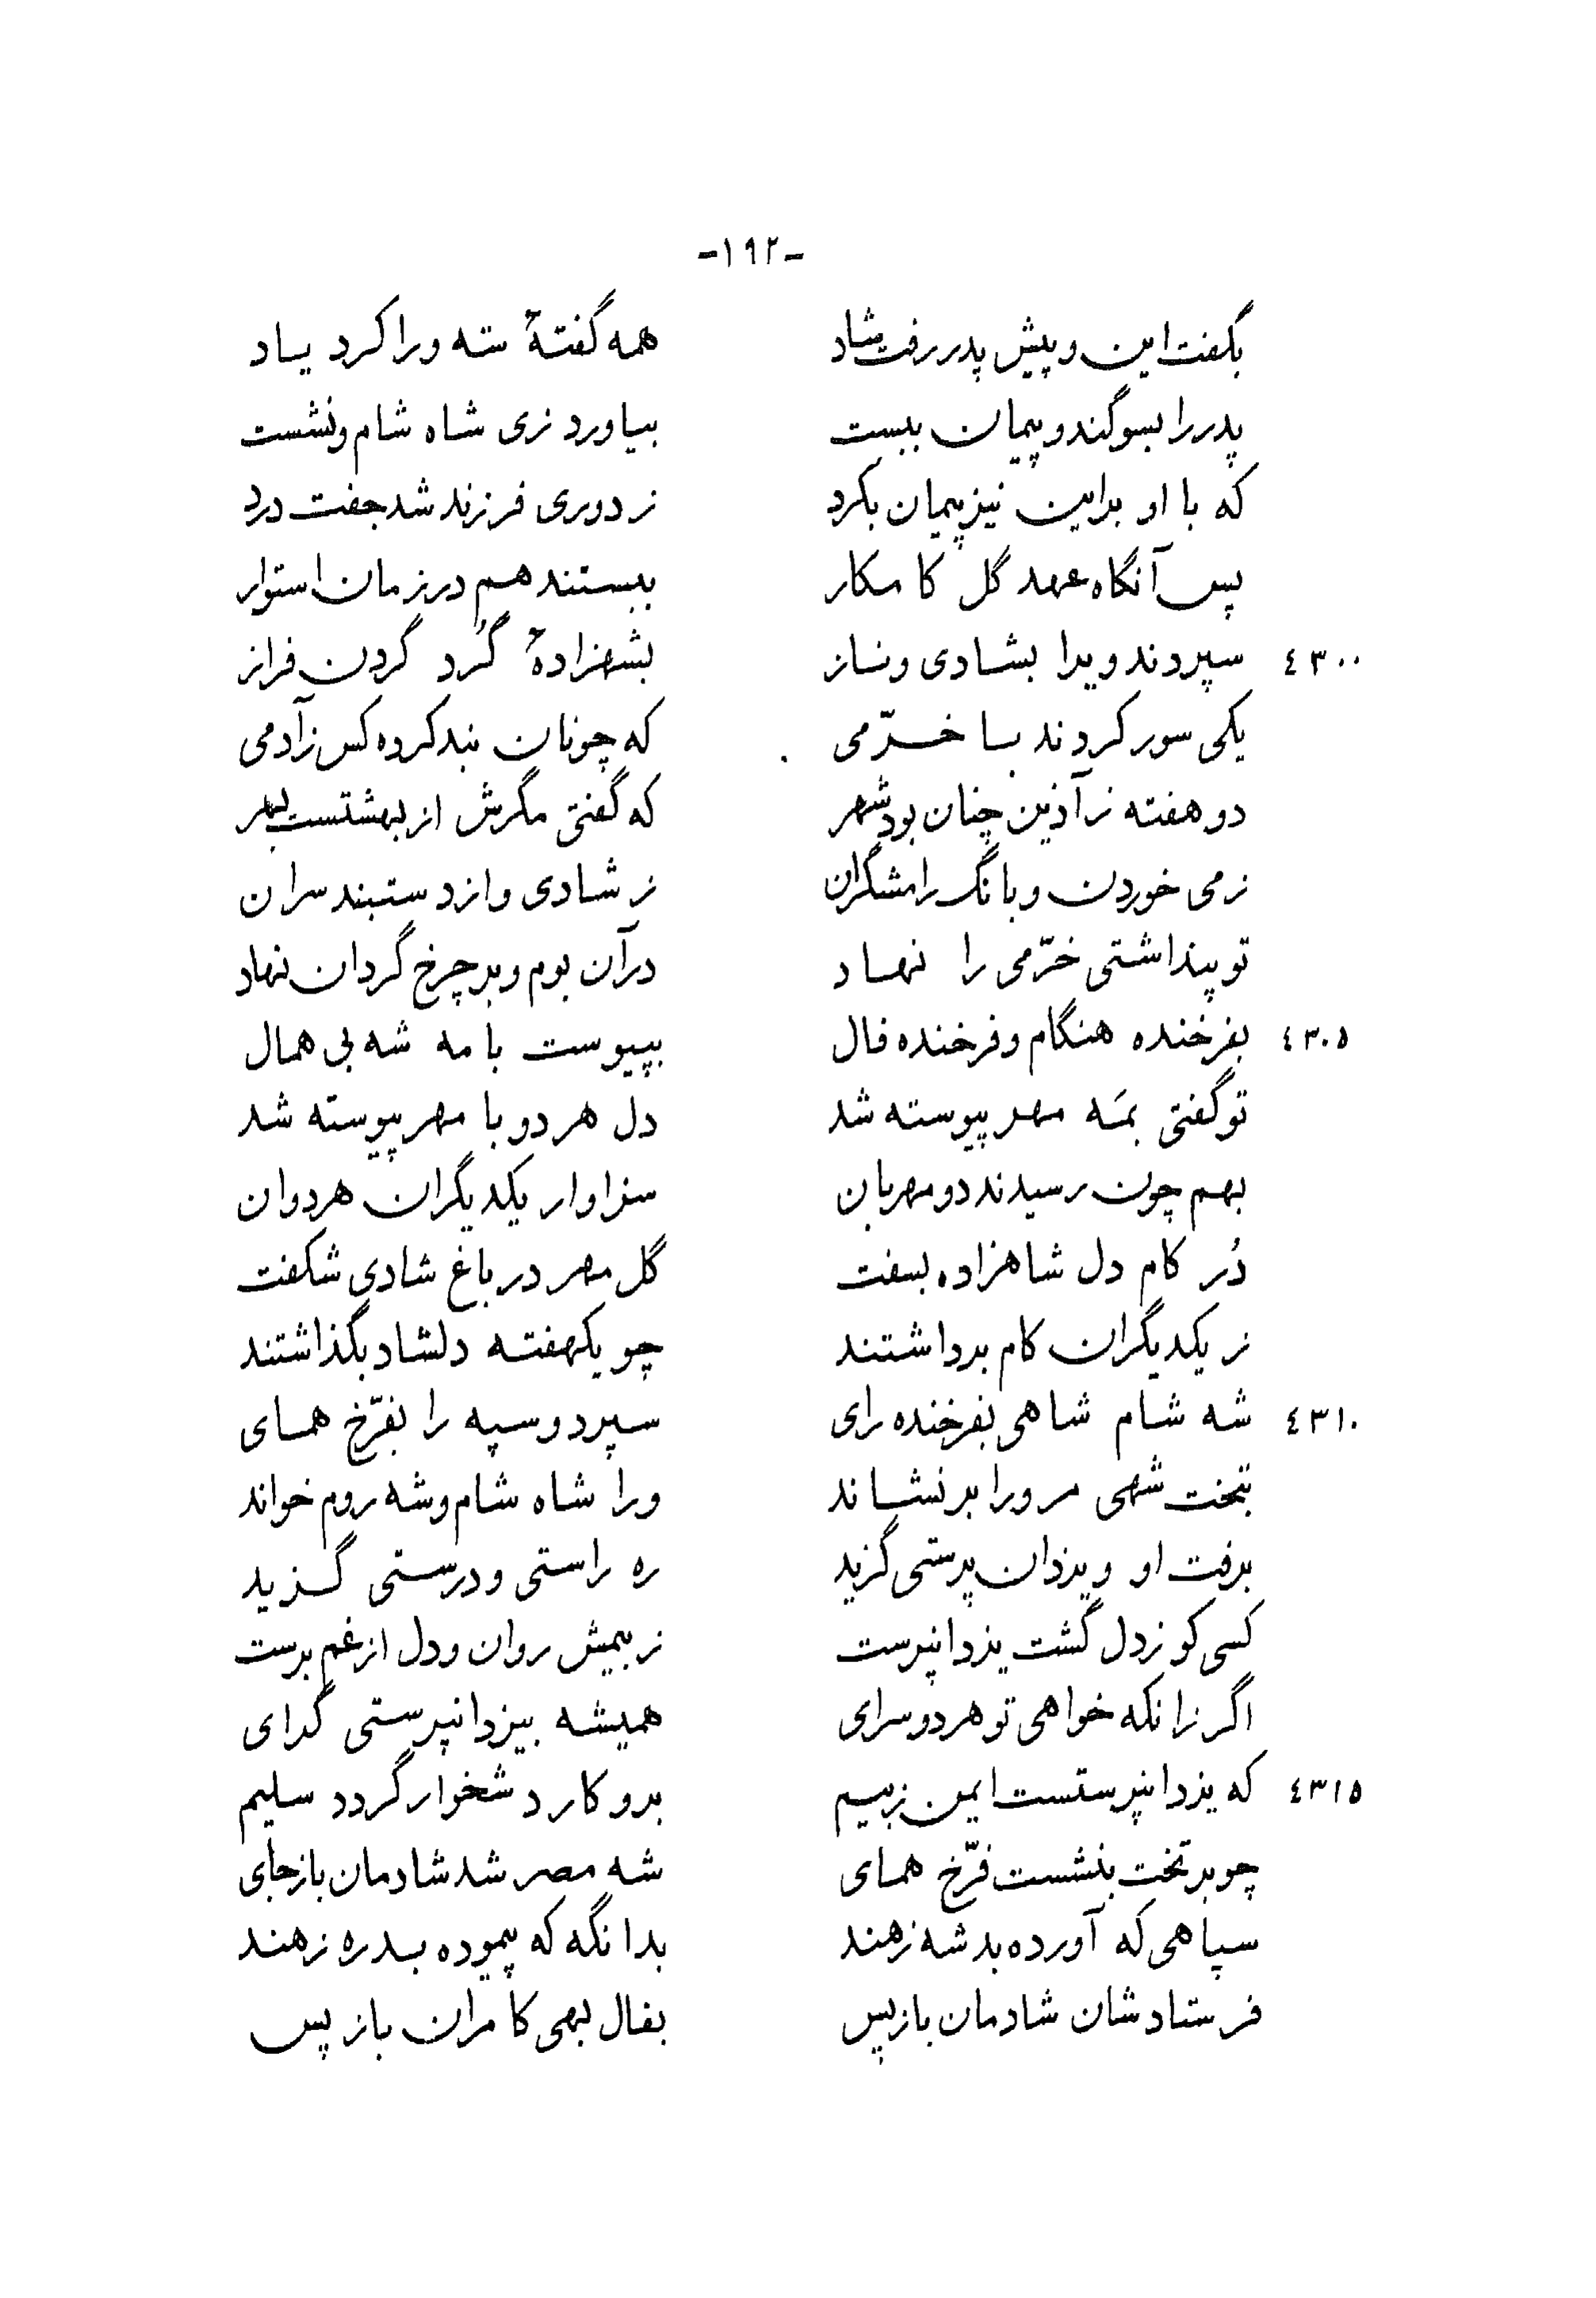 -۱۹۲-
بگفت این و پیش پدر رفت شاد همه گفتهٔ شه ورا کرد یاد
پدر را بسوگند و پیمان ببست بیاورد زی شاه شام و نشست
که با او براین نیز پیمان بکرد ز دوری فرزند شد جفت درد
پس آنگاه عهد گل کامکار ببستند هم در زمان استوار
٤٣٠٠ سپردند ویرا بشادی و ناز بشهزادهٔ گُرد گردن فراز
یکی سور کردند با خرّمی که چونان نبد کرده کس زآدمی
دو هفته ز آذین چنان بود شهر که گفتی مگرش از بهشتست بهر
ز می خوردن و بانگ رامشگران ز شادی و از دستبند سران
تو پنداشتی خرّمی را نهاد در آن بوم و بر چرخ گردان نهاد
٤٣٠٥ بفرخنده هنگام و فرخنده فال بپیوست با مه شه بی همال
تو گفتی بمَه مهر پیوسته شد دل هر دو با مهر پیوسته شد
بهم چون رسیدند دو مهربان سزاوار یکدیگران هردوان
دُر کام دل شاهزاده بسفت گل مهر در باغ شادی شکفت
ز یکدیگران کام برداشتند چو یکهفته دلشاد بگذاشتند
٤٣١٠ شه شام شاهی بفرخنده رای سپرد و سپه را بفرّخ همای
بتخت شهی مر ورا برنشاند ورا شاه شام و شه روم خواند
برفت او و یزدان پرستی گزید ره راستی و درستی گزید
کسی کو ز دل گشت یزدانپرست ز بیمش روان و دل از غم برست
اگر زانکه خواهی تو هر دو سرای همیشه بیزدانپرستی گرای
٤٣١٥ که یزدانپرستست ایمن ز بیم برو کار دشخوار گردد سلیم
چو بر تخت بنشست فرّخ همای شه مصر شد شادمان باز جای
سپاهی که آورده بد شه زهند بدانگه که پیموده بد ره زهند
فرستادشان شادمان باز پس بفال بهی کامران باز پس